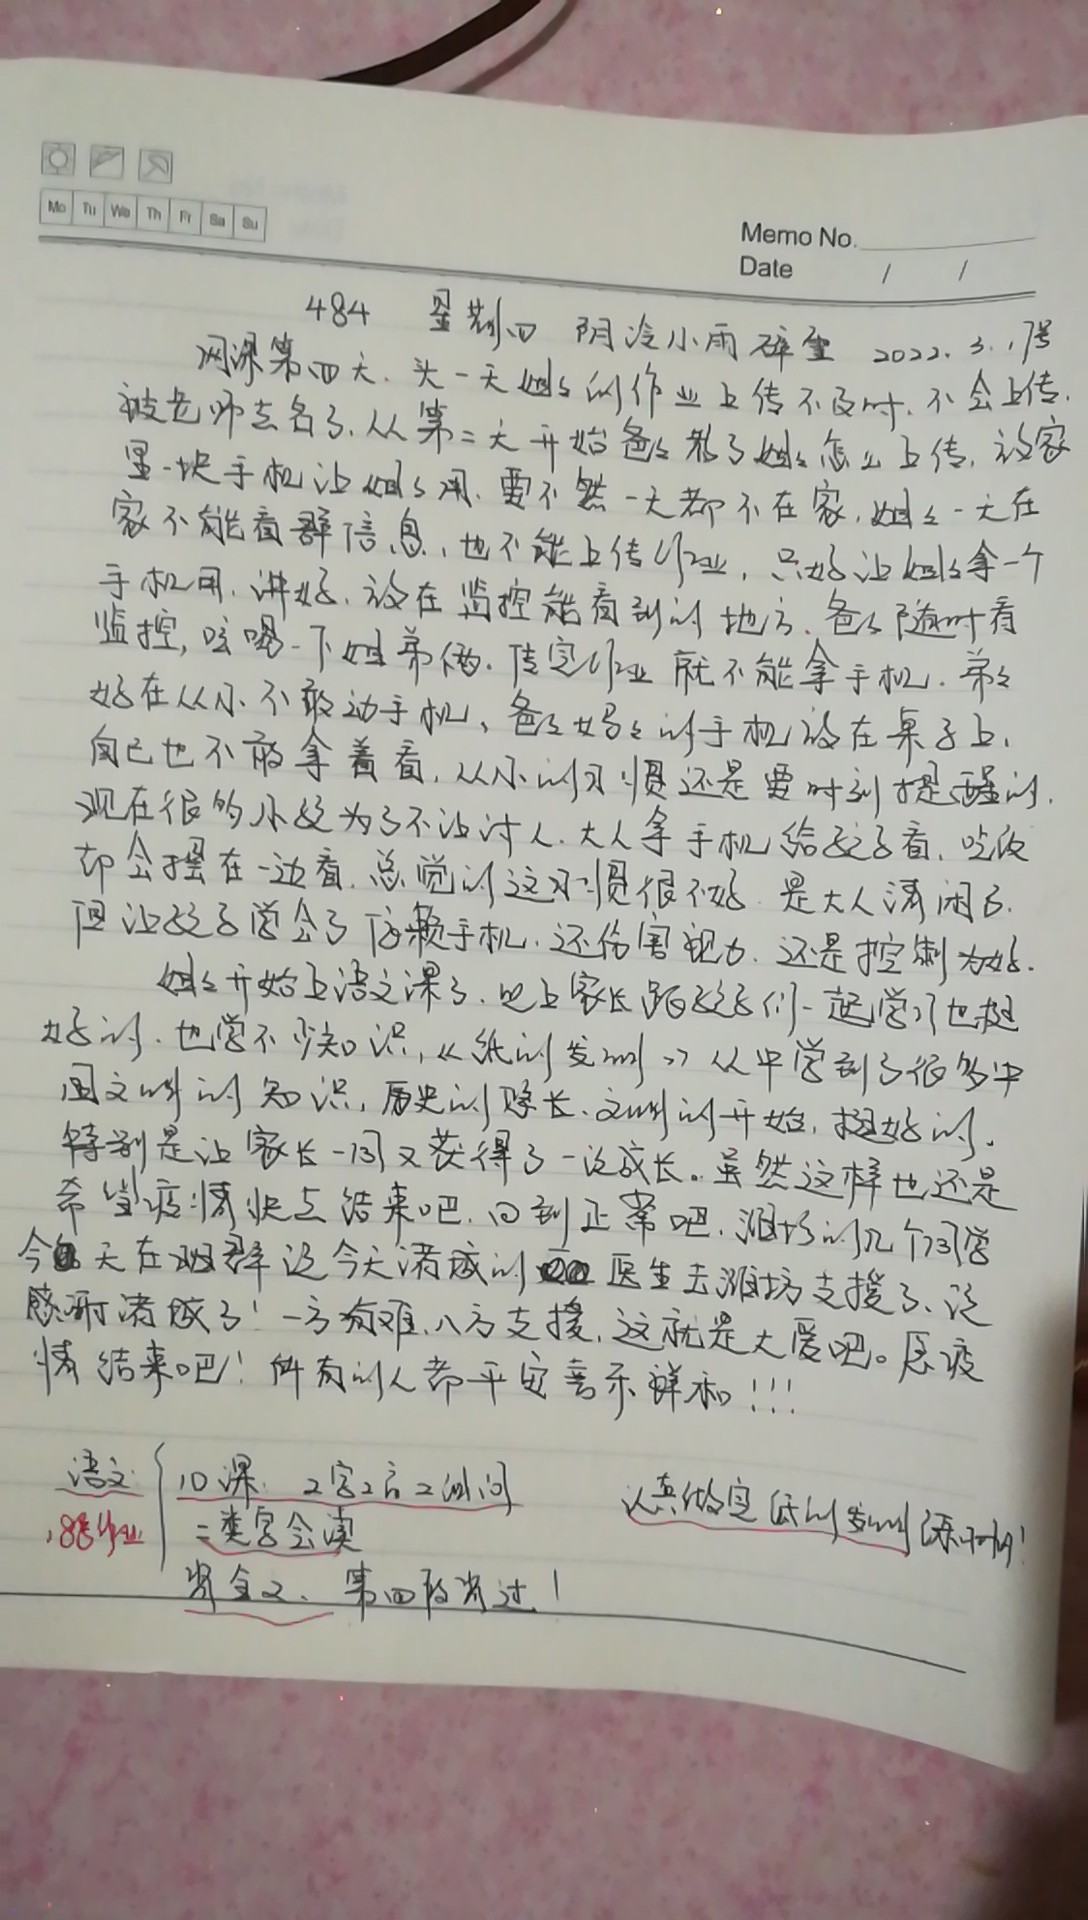 Mo Tu We Th Fr Sa Su
Memo No.
Date / /
484 星期四 阴冷小雨碎雪 2022.3.17号
网课第四天,头一天姐姐的作业上传不及时,不会上传,
被老师点名了,从第二天开始爸爸教了姐姐怎么上传,放家
里一块手机让姐姐用,要不然一天都不在家,姐姐一天在
家不能看群信息,也不能上传作业,只好让姐姐拿一个
手机用,讲好,放在监控能看到的地方,爸爸随时看
监控,吆喝一下姐弟俩,传完作业就不能拿手机,弟弟
好在从小不敢动手机,爸爸妈妈的手机放在桌子上,
自己也不敢拿着看,从小的习惯还是要时刻提醒的,
现在很多的小孩为了不让讨人,大人拿手机给孩子看,吃饭
都会摆在一边看,总觉的这习惯很不好,是大人清闲了,
但让孩子学会了依赖手机,还伤害视力,还是控制为好.
姐姐开始上语文课了,晚上家长跟孩子们一起学习也挺
好的,也学不少知识,《纸的发明》从中学到了很多中
国文明的知识,历史的悠长,文明的开始,挺好的,
特别是让家长一同又获得了一次成长。虽然这样也还是
希望疫情快点结束吧,回到正常吧,潍坊的几个同学
今天在班群说今天诸城的医生去潍坊支援了,说
感谢诸城了!一方有难,八方支援,这就是大爱吧。愿疫
情结束吧!所有的人都平安喜乐祥和!!!
语文: 10课: 2字2言2组词 认真做完纸的发明练习册!
18号作业 二类字会读
背全文、第四段背过!